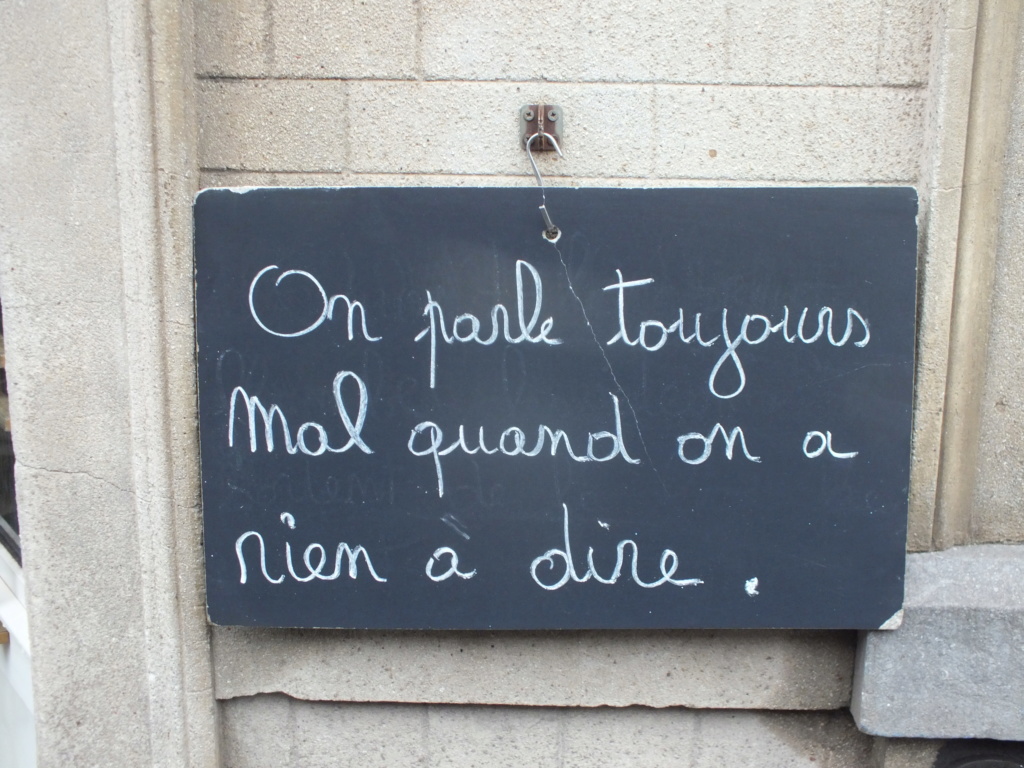 On parle toujours
Mal quand on a
rien à dire.